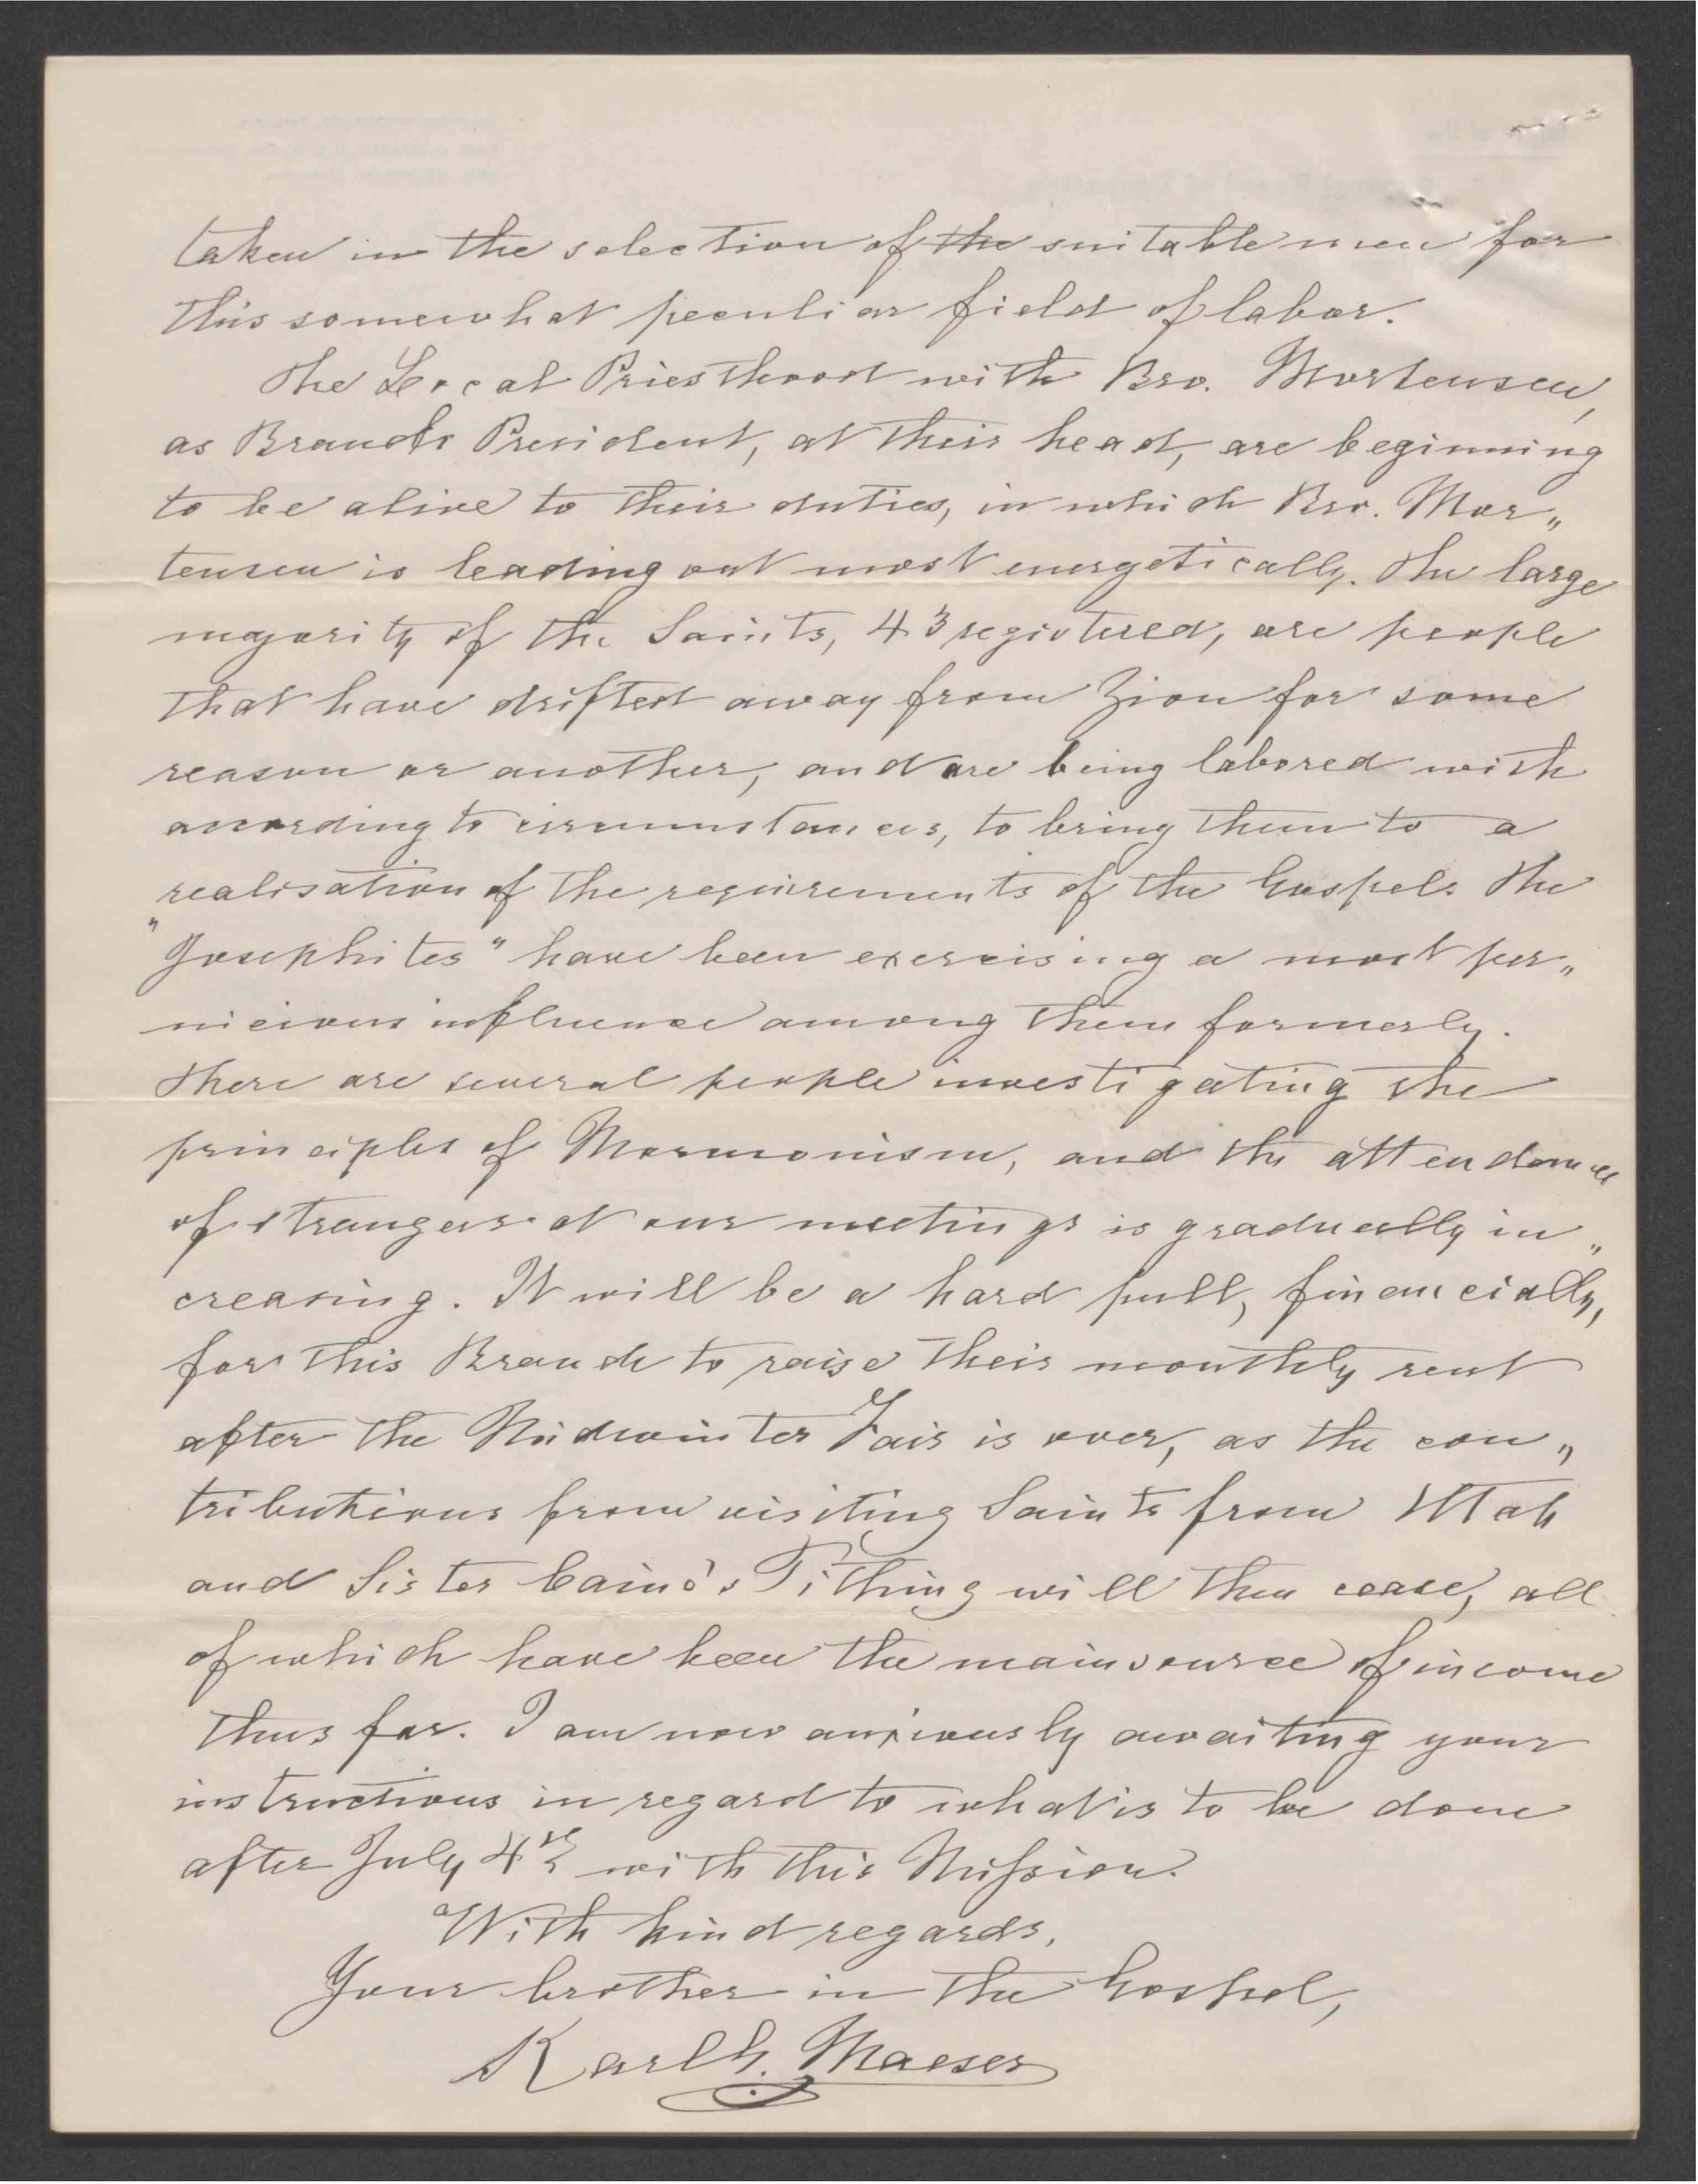 taken in the selection of the suitable men for
this somewhat peculiar field of labor.
The Local Priesthood with Bro. Mortensen,
as Branch President, at their head, are beginning
to be alive to their duties, in which Bro. Mor„
tensen is leading out most energetically. The large
majority of the Saints, 43 registered, are people
that have drifted away from Zion for some
reason or another, and are being labored with
according to circumstances, to bring them to a
realisation of the requirements of the Gospel. The
"Josephites" have been exercising a most per„
nicious influence among them formerly.
There are several people investigating the
principles of Mormonism, and the attendance
of strangers at our meetings is gradually in„
creasing. It will be a hard pull, financially,
for this Branch to raise their monthly rent
after the Midwinter Fair is over, as the con„
tributions from visiting Saints from Utah
and Sister Caine's Tithing will then cease, all
of which have been the main source of income
thus far. I am now anxiously awaiting your
instructions in regard to what is to be done
after July 4th with this Mission.
With kind regards,
Your brother in the Gospel,
Karl G. Maeser